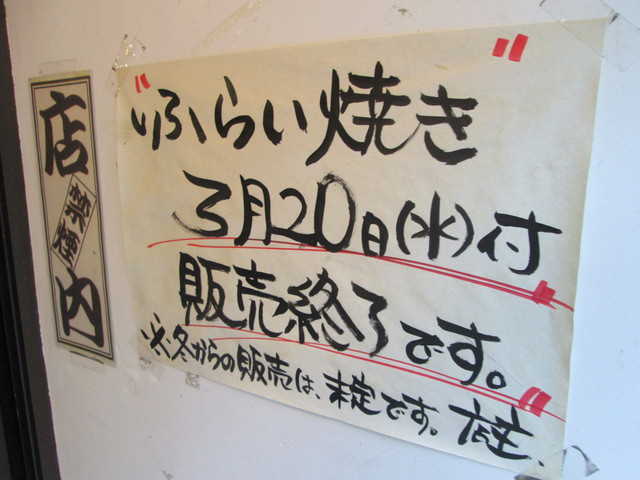 店内
禁煙
"ふらい焼き"
3月20日(水)付
"販売終了です。"
※冬からの販売は、未定です。店主、